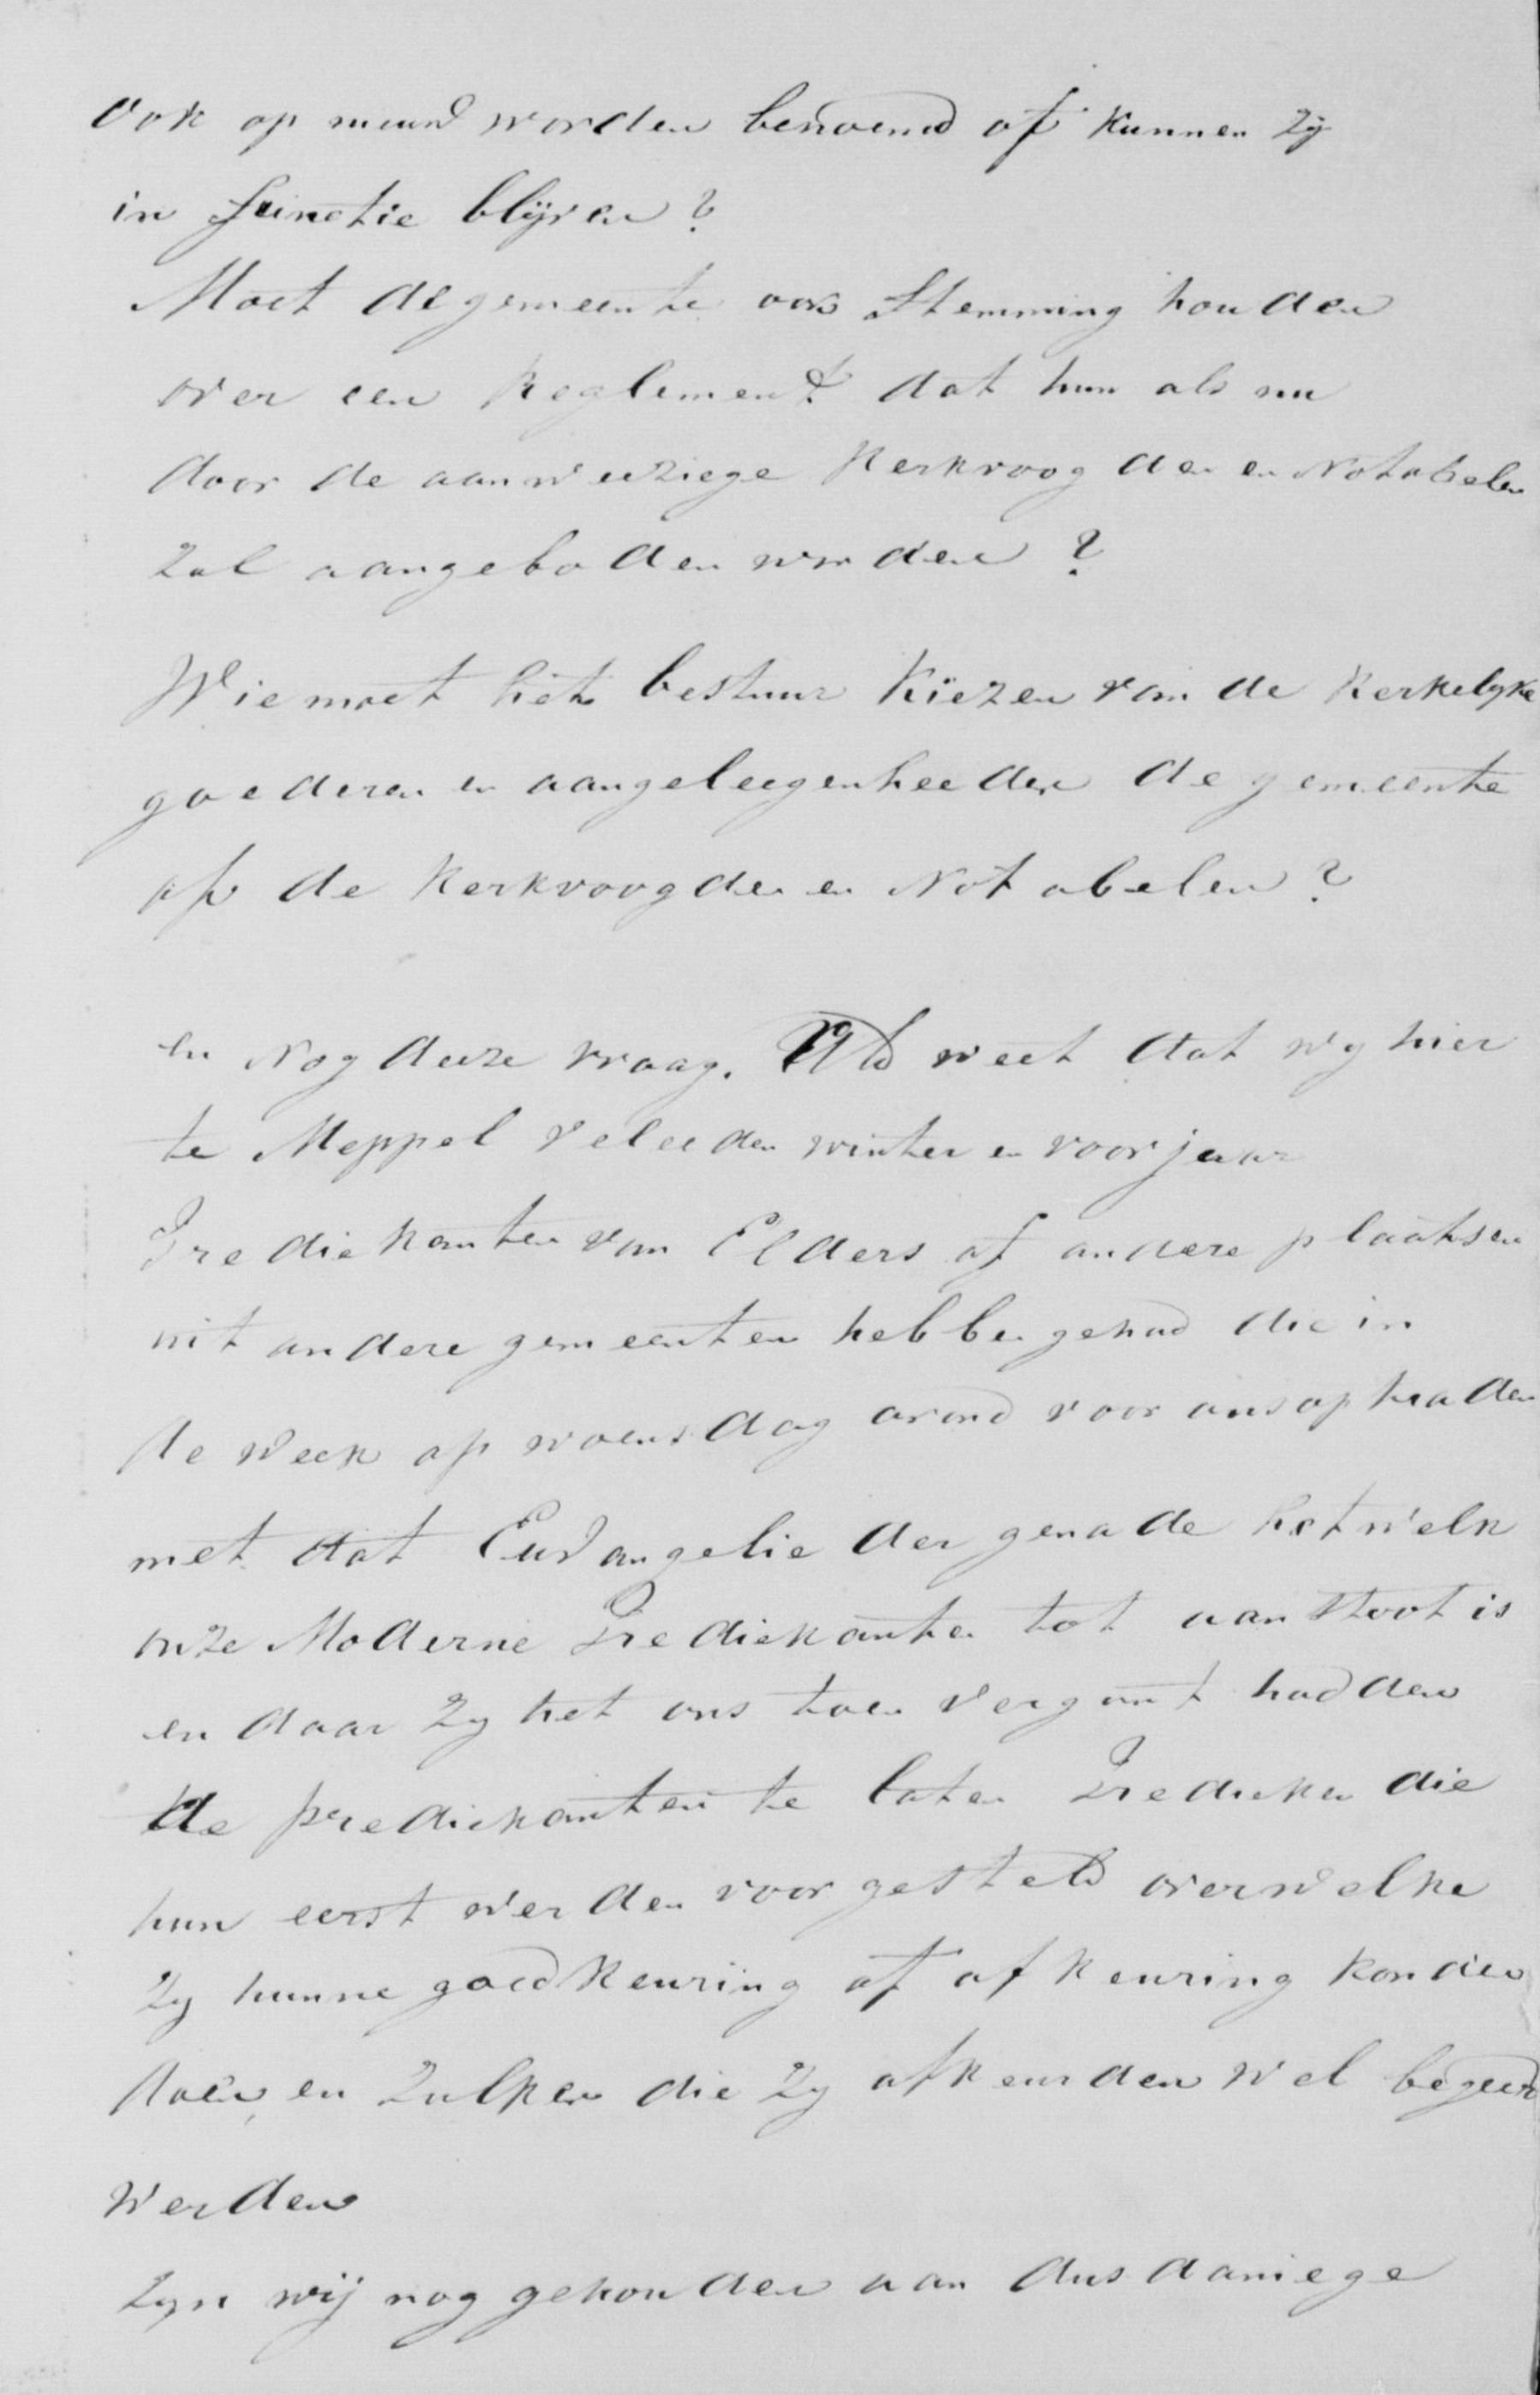 Ook op nieuw worden benoemd of kunnen zÿ
in functie blÿven?
Moet de gemeente ook Stemming houden
over een Reglement dat hun als nu
door de aanweeziege Kerkvoogden en Notabelen
zal aangeboden worden?
Wie moet het bestuur kiezen van de kerkelyke
goederen en aangeleegenheeden de gemeente
of de Kerkvoogden en Notabelen?
en Nog deeze vraag. UEd weet dat wy hier
te Meppel veleeden winter en voorjaar
Prediekanten van Elders of andere plaatsen
uit andere gemeenten hebben gehad die in
de week op woensdag avond voor ons optraden
met dat Euvangelie der genade hetwelk
onze Moderne Prediekanten tot aanstoot is
en daar zy het ons toen vergunt hadden
de prediekanten te laten Predieken die
hun eerst werden voorgesteld over welke
zy hunne goedkeuring of afkeuring konden
doen, en zulken die zy afkeurden wel begeerd
werden
zyn wij nog gehouden aan dusdaniege